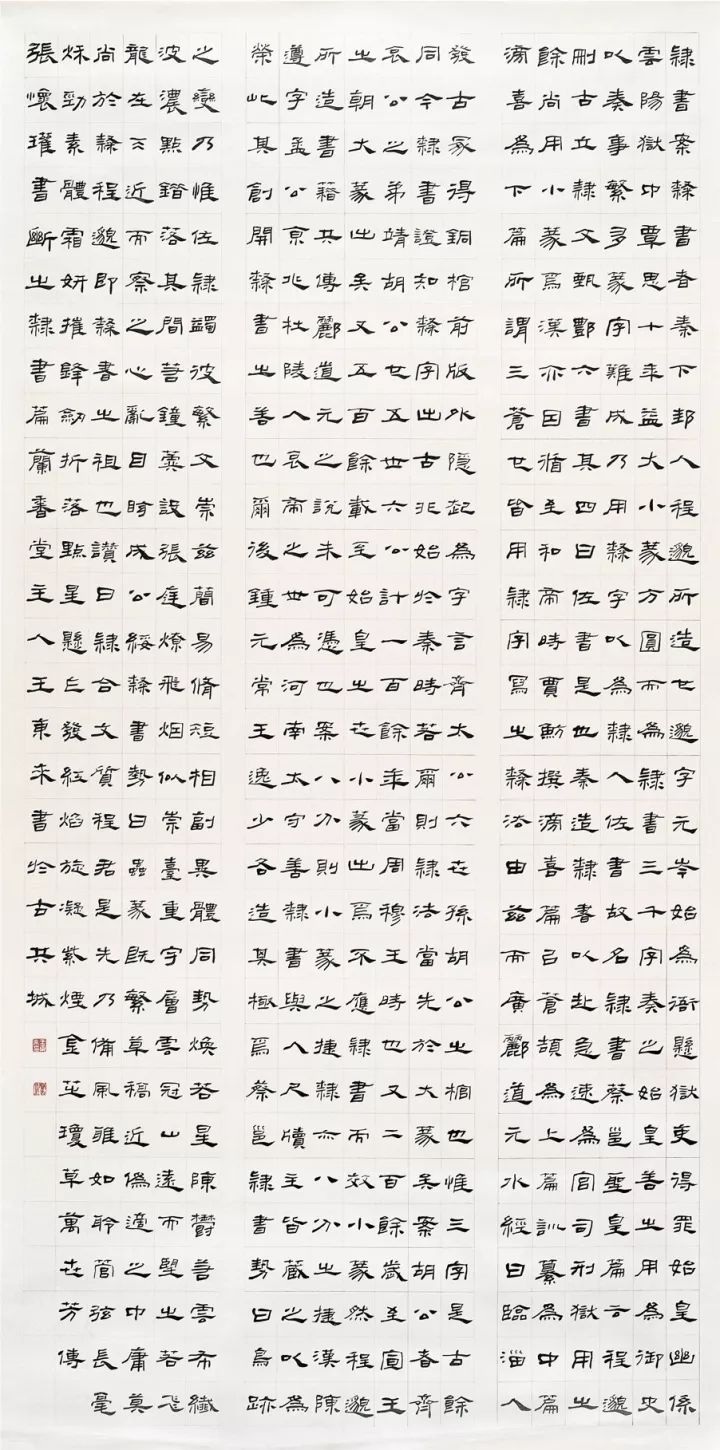 隸書案隸書者秦下邽人程邈所造也邈字元岑始為衙懸獄吏得罪始皇幽係
雲陽獄中覃思十年益大小篆方圓而為隸書三千字奏之始皇善之用為御史
以奏事繁多篆字難成乃用隸字以為隸人佐書故名隸書蔡邕聖皇篇云程邈
刪古立隸文甄酆六書其四曰佐書是也秦造隸書以赴急速為官司刑獄用之
餘尚用小篆焉漢亦因循至和帝時賈魴撰滂喜篇以蒼頡為上篇訓纂為中篇
滂喜為下篇所謂三蒼也皆用隸字寫之隸法由茲而廣酈道元水經曰臨淄人
發古冢得銅棺前版外隱起為字言齊太公六世孫胡公之棺也惟三字是古餘
同今隸書證知隸字出古非始於秦時若爾則隸法當先於大篆矣案胡公者齊
哀公之弟靖胡公也五世六公計一百餘年當周穆王時也又二百餘歲至宣王
之朝大篆出矣又五百餘載至始皇之世小篆出焉不應隸書而效小篆然程邈
所造書籍共傳酈道元之說未可憑也案八分則小篆之捷隸亦八分之捷漢陳
遵字孟公京兆杜陵人哀帝之世為河南太守善隸書與人尺牘主皆藏之以為
榮此其創開隸書之善也爾後鍾元常王逸少各造其極焉蔡邕隸書勢曰鳥跡
之變乃惟佐隸蠲彼繁文崇茲簡易脩短相副異體同勢煥若星陳鬱若雲布纖
波濃點錯落其間若鐘簴設張庭燎飛烟似崇臺重宇層雲冠山遠而望之若飛
龍在天近而察之心亂目眩成公綏隸書勢曰蟲篆既繁草稿近偽適之中庸莫
尚於隸程邈即隸書之祖也讚曰隸合文質程君是先乃備風雅如聆管弦長毫
秋勁素體霜妍摧鋒劍折落點星懸乍發紅焰旋凝紫煙金芝瓊草萬世芳傳
張懷瓘書斷之隸書篇蘭香堂主人王東來書於古共城